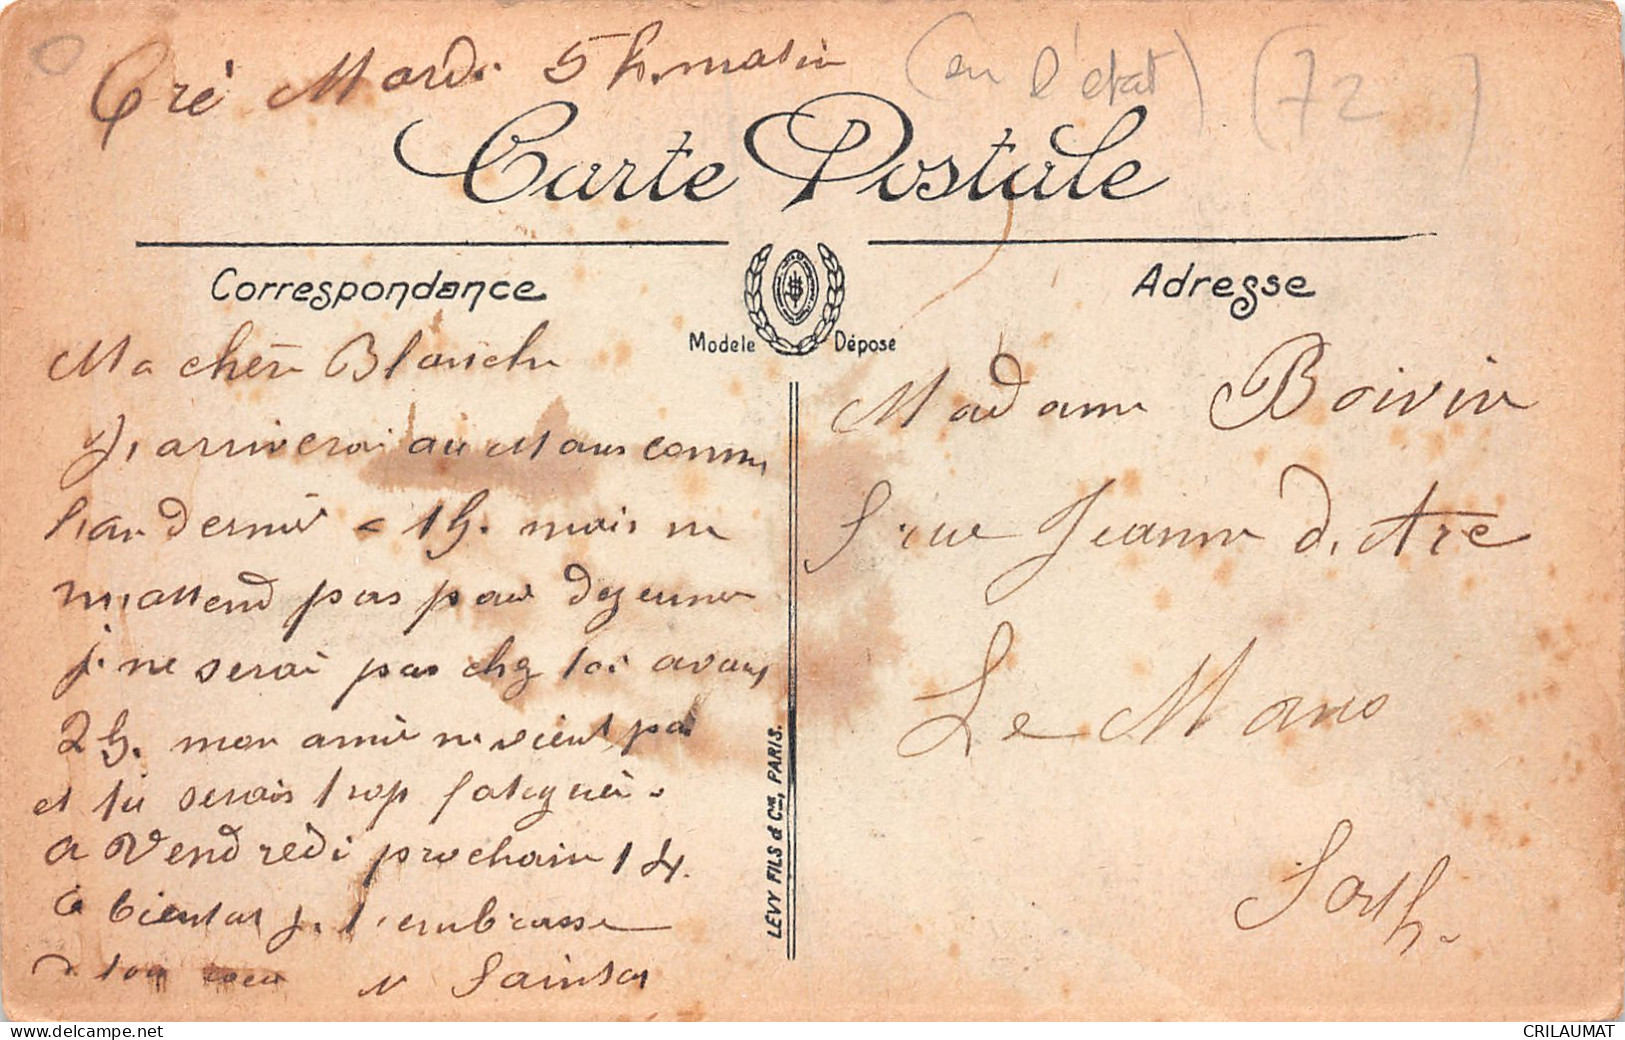 Cré Mardi 5 h. matin (en l'état) (72)
Carte Postale
Correspondance
Adresse
Modele Déposé
Ma chère Blanche
J'arriverai au Mans comme
l'an dernier a 1h. mais ne
m'attend pas pour dejeuner
je ne serai pas chez toi avant
2h. mon amie ne vient pas
et tu serais trop fatiguée.
a Vendredi prochain 14.
a bientot je t'embrasse
d ton coeur
Madame Boivin
rue Jeanne d'Arc
Le Mans
Sarth.
LEVY FILS & Cie, PARIS.
CRILAUMAT